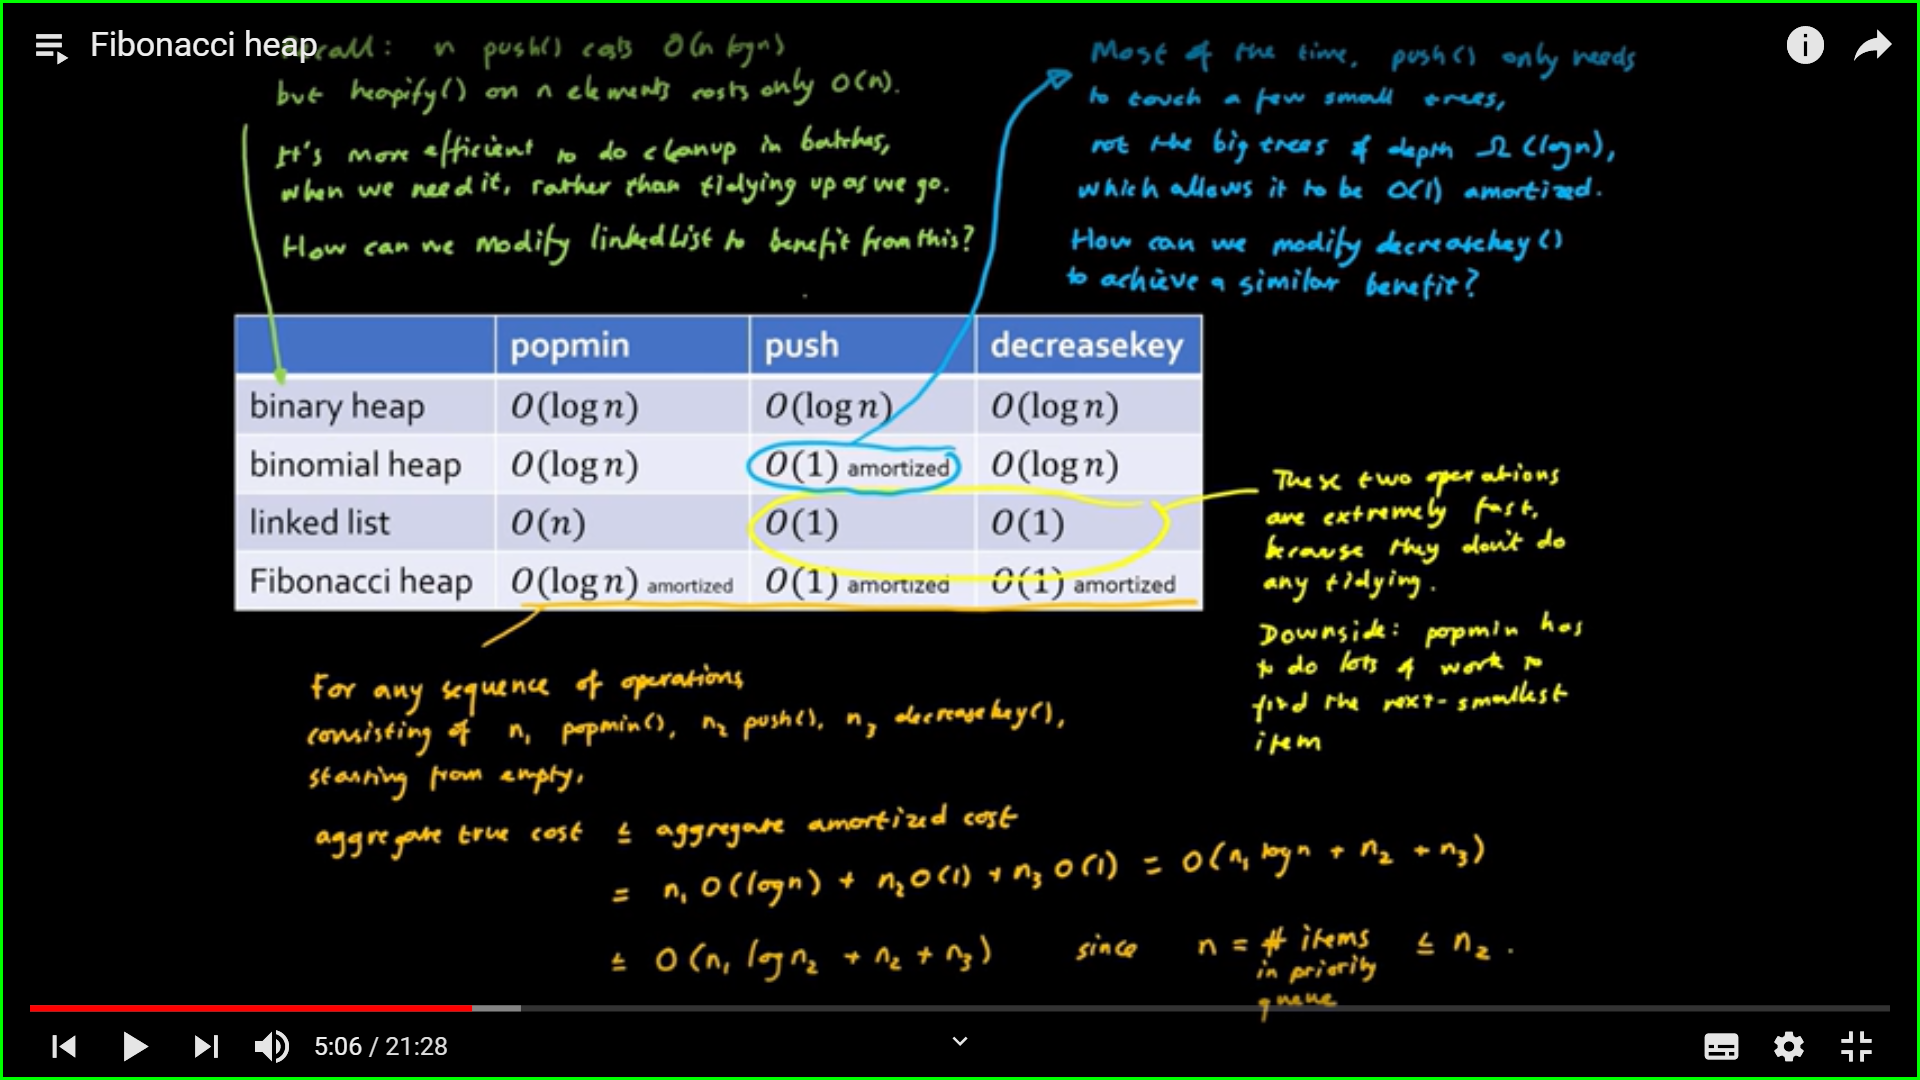 Fibonacci heap
Recall: n push() costs O(n log n)
but heapify() on n elements costs only O(n).
It's more efficient to do cleanup in batches,
when we need it, rather than tidying up as we go.
How can we modify linked list to benefit from this?
Most of the time, push() only needs
to touch a few small trees,
not the big trees of depth Ω(log n),
which allows it to be O(1) amortized.
How can we modify decreasekey()
to achieve a similar benefit?
popmin push decreasekey
binary heap O(log n) O(log n) O(log n)
binomial heap O(log n) O(1) amortized O(log n)
linked list O(n) O(1) O(1)
Fibonacci heap O(log n) amortized O(1) amortized O(1) amortized
These two operations
are extremely fast,
because they don't do
any tidying.
Downside: popmin has
to do lots of work to
find the next-smallest
item
For any sequence of operations
consisting of n₁ popmin(), n₂ push(), n₃ decreasekey(),
starting from empty,
aggregate true cost ≤ aggregate amortized cost
= n₁ O(log n) + n₂ O(1) + n₃ O(1) = O(n₁ log n + n₂ + n₃)
≤ O(n₁ log n₂ + n₂ + n₃) since n = # items in priority queue ≤ n₂.
5:06 / 21:28